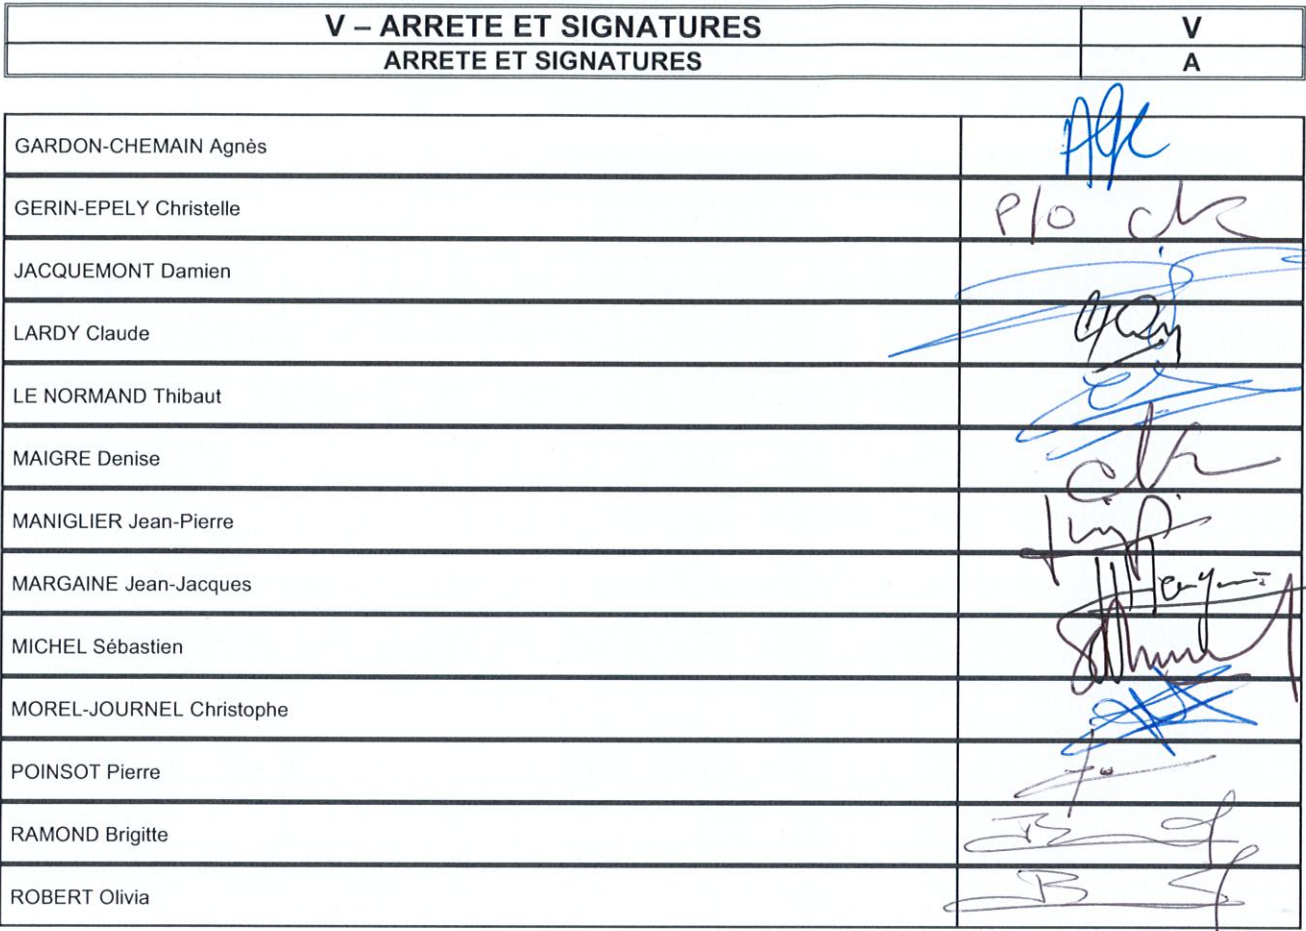 V – ARRETE ET SIGNATURES V
ARRETE ET SIGNATURES A
GARDON-CHEMAIN Agnès
GERIN-EPELY Christelle P/o
JACQUEMONT Damien
LARDY Claude
LE NORMAND Thibaut
MAIGRE Denise
MANIGLIER Jean-Pierre
MARGAINE Jean-Jacques
MICHEL Sébastien
MOREL-JOURNEL Christophe
POINSOT Pierre
RAMOND Brigitte
ROBERT Olivia